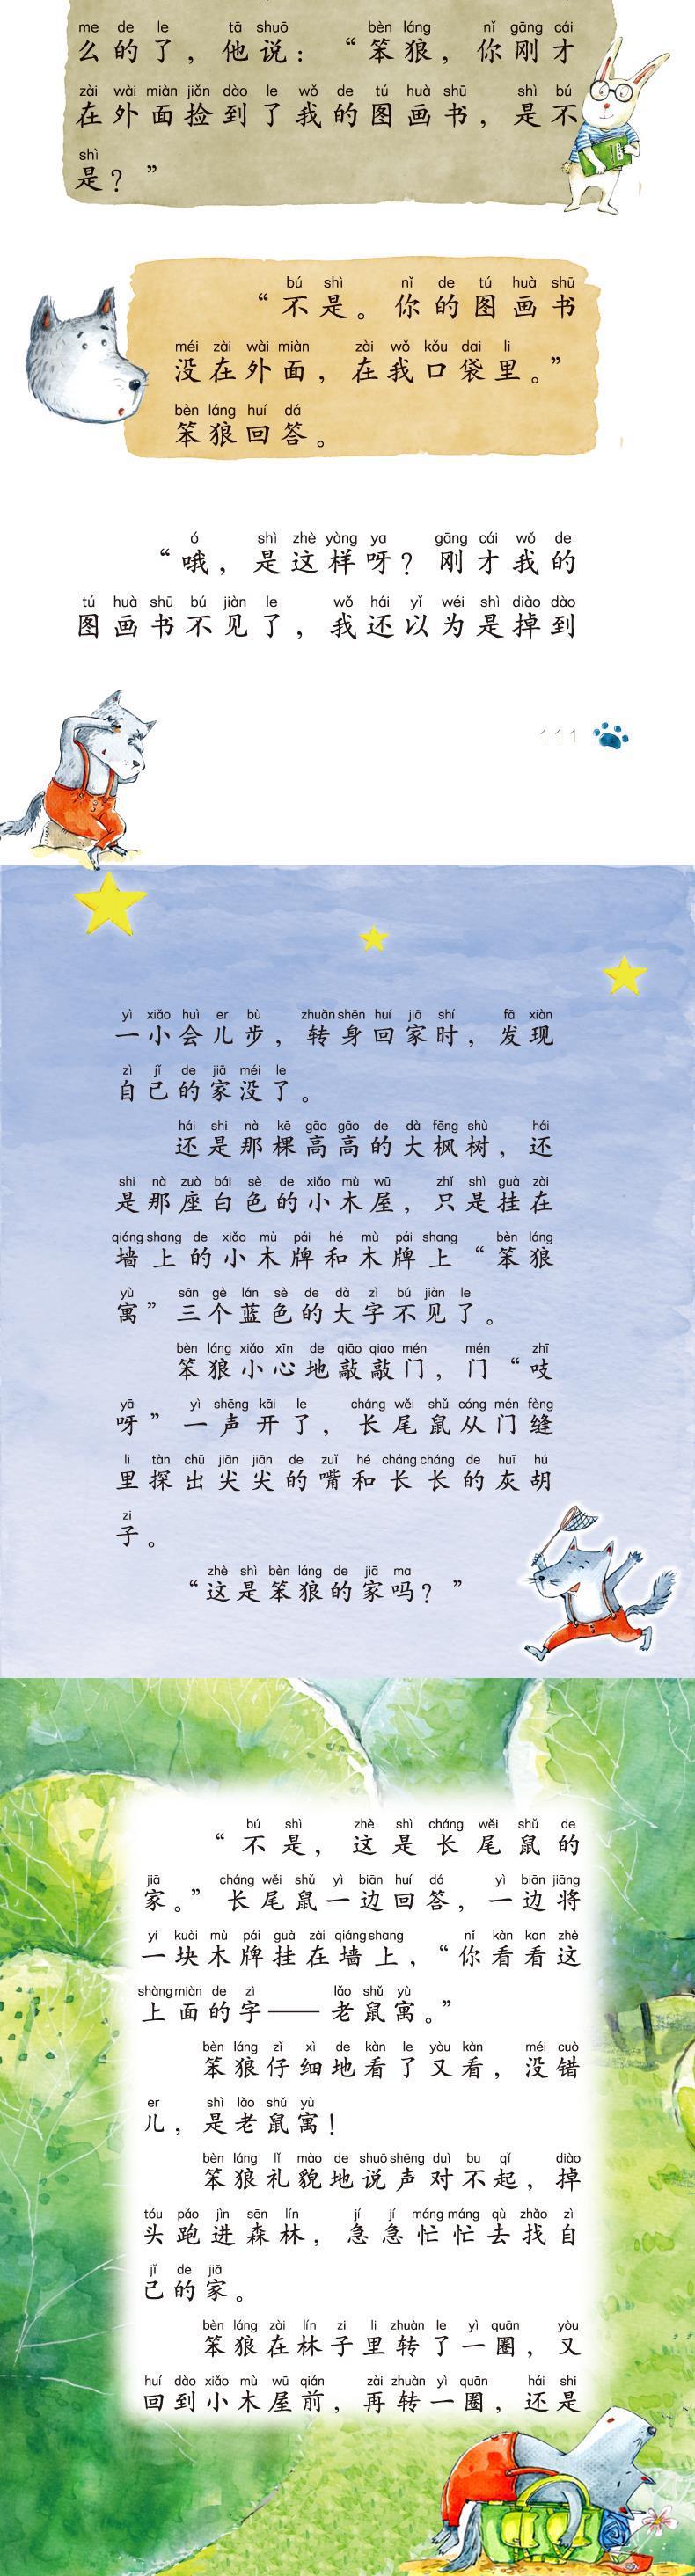 me de le tā shuō bèn láng nǐ gāng cái
么的了，他说：“笨狼，你刚才
zài wài miàn jiǎn dào le wǒ de tú huà shū shì bú
在外面捡到了我的图画书，是不
shì
是？”
bú shì nǐ de tú huà shū
“不是。你的图画书
méi zài wài miàn zài wǒ kǒu dai li
没在外面，在我口袋里。”
bèn láng huí dá
笨狼回答。
ó shì zhè yàng ya gāng cái wǒ de
“哦，是这样呀？刚才我的
tú huà shū bú jiàn le wǒ hái yǐ wéi shì diào dào
图画书不见了，我还以为是掉到
111
yì xiǎo huì er bù zhuǎn shēn huí jiā shí fā xiàn
一小会儿步，转身回家时，发现
zì jǐ de jiā méi le
自己的家没了。
hái shi nà kē gāo gāo de dà fēng shù hái
还是那棵高高的大枫树，还
shi nà zuò bái sè de xiǎo mù wū zhǐ shì guà zài
是那座白色的小木屋，只是挂在
qiáng shang de xiǎo mù pái hé mù pái shang bèn láng
墙上的小木牌和木牌上“笨狼
yù sān gè lán sè de dà zì bú jiàn le
寓”三个蓝色的大字不见了。
bèn láng xiǎo xīn de qiāo qiao mén mén zhī
笨狼小心地敲敲门，门“吱
yā yì shēng kāi le cháng wěi shǔ cóng mén fèng
呀”一声开了，长尾鼠从门缝
li tàn chū jiān jiān de zuǐ hé cháng cháng de huī hú
里探出尖尖的嘴和长长的灰胡
zi
子。
zhè shì bèn láng de jiā ma
“这是笨狼的家吗？”
bú shì zhè shì cháng wěi shǔ de
“不是，这是长尾鼠的
jiā cháng wěi shǔ yì biān huí dá yì biān jiāng
家。”长尾鼠一边回答，一边将
yí kuài mù pái guà zài qiáng shang nǐ kàn kan zhè
一块木牌挂在墙上，“你看看这
shàng miàn de zì lǎo shǔ yù
上面的字——老鼠寓。”
bèn láng zǐ xì de kàn le yòu kàn méi cuò
笨狼仔细地看了又看，没错
er shì lǎo shǔ yù
儿，是老鼠寓！
bèn láng lǐ mào de shuō shēng duì bu qǐ diào
笨狼礼貌地说声对不起，掉
tóu pǎo jìn sēn lín jí jí máng máng qù zhǎo zì
头跑进森林，急急忙忙去找自
jǐ de jiā
己的家。
bèn láng zài lín zi li zhuàn le yì quān yòu
笨狼在林子里转了一圈，又
huí dào xiǎo mù wū qián zài zhuàn yì quān hái shi
回到小木屋前，再转一圈，还是